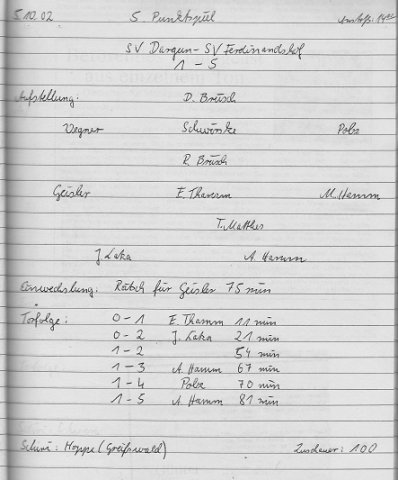 5.10.02 5. Punktspiel Anstoß: 14 00
SV Dargun - SV Ferdinandshof
1 - 5
Aufstellung: D. Brüsch
Wegner Schwinke Polz
R. Brüsch
Geisler E. Thamm M. Hamm
T. Matthes
J. Laka A. Hamm
Einwechslung: Rätsch für Geisler 75 min
Torfolge: 0 - 1 E. Thamm 11 min
0 - 2 J. Laka 21 min
1 - 2 54 min
1 - 3 A. Hamm 67 min
1 - 4 Polz 70 min
1 - 5 A. Hamm 81 min
Schiri: Hoppe (Greifswald) Zuschauer: 100